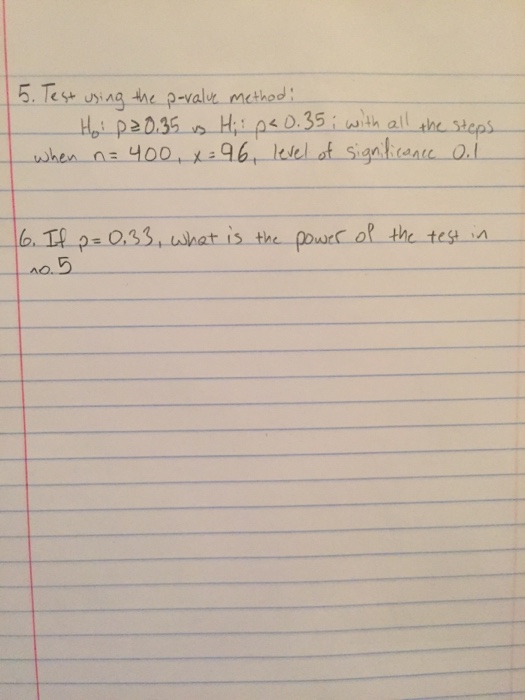 5. Test using the p-value method:
H₀: p≥0.35 vs H₁: p<0.35; with all the steps
when n=400, x=96, level of significance 0.1
6. If p=0.33, what is the power of the test in
no.5